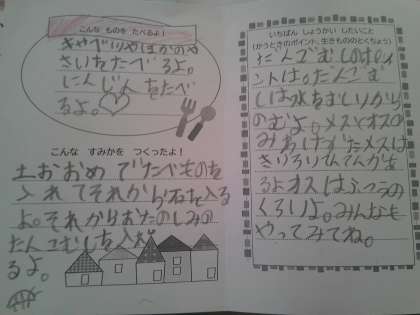 こんな ものを たべるよ！
きゃべりやほかのや
さいをたべるよ。
にんじんをたべ
るよ。
こんな すみかを つくったよ！
土おおめ でたべものを
入れてそれから石を入る
よ。それからおたのしみの
たんごむしを入
るよ。
いちばん しょうかい したいこと
(かうときのポイント、生きもののとくちょう)
だんごむしのポイ
ントは。だんごむ
しは水をおしりから
のむよ。メスとオスの
みわけかたメスは
きいろいてんてんがあ
るよオスはふつうの
くろいよ。みんなも
やってみてね。